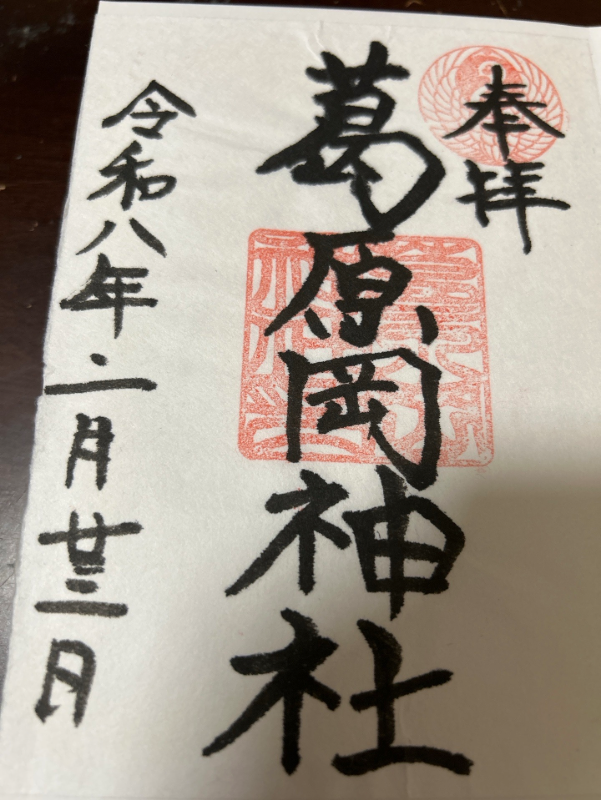 奉拝
葛原岡神社
令和八年二月廿三日